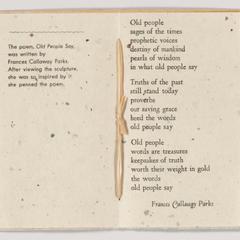 The poem, Old People Say,
was written by
Frances Callaway Parks.
After viewing the sculpture,
she was so inspired by it
she penned the poem.
Old people
sages of the times
prophetic voices
destiny of mankind
pearls of wisdom
in what old people say
Truths of the past
still stand today
proverbs
our saving grace
heed the words
old people say
Old people
words are treasures
keepsakes of truth
worth their weight in gold
the words
old people say
Frances Callaway Parks